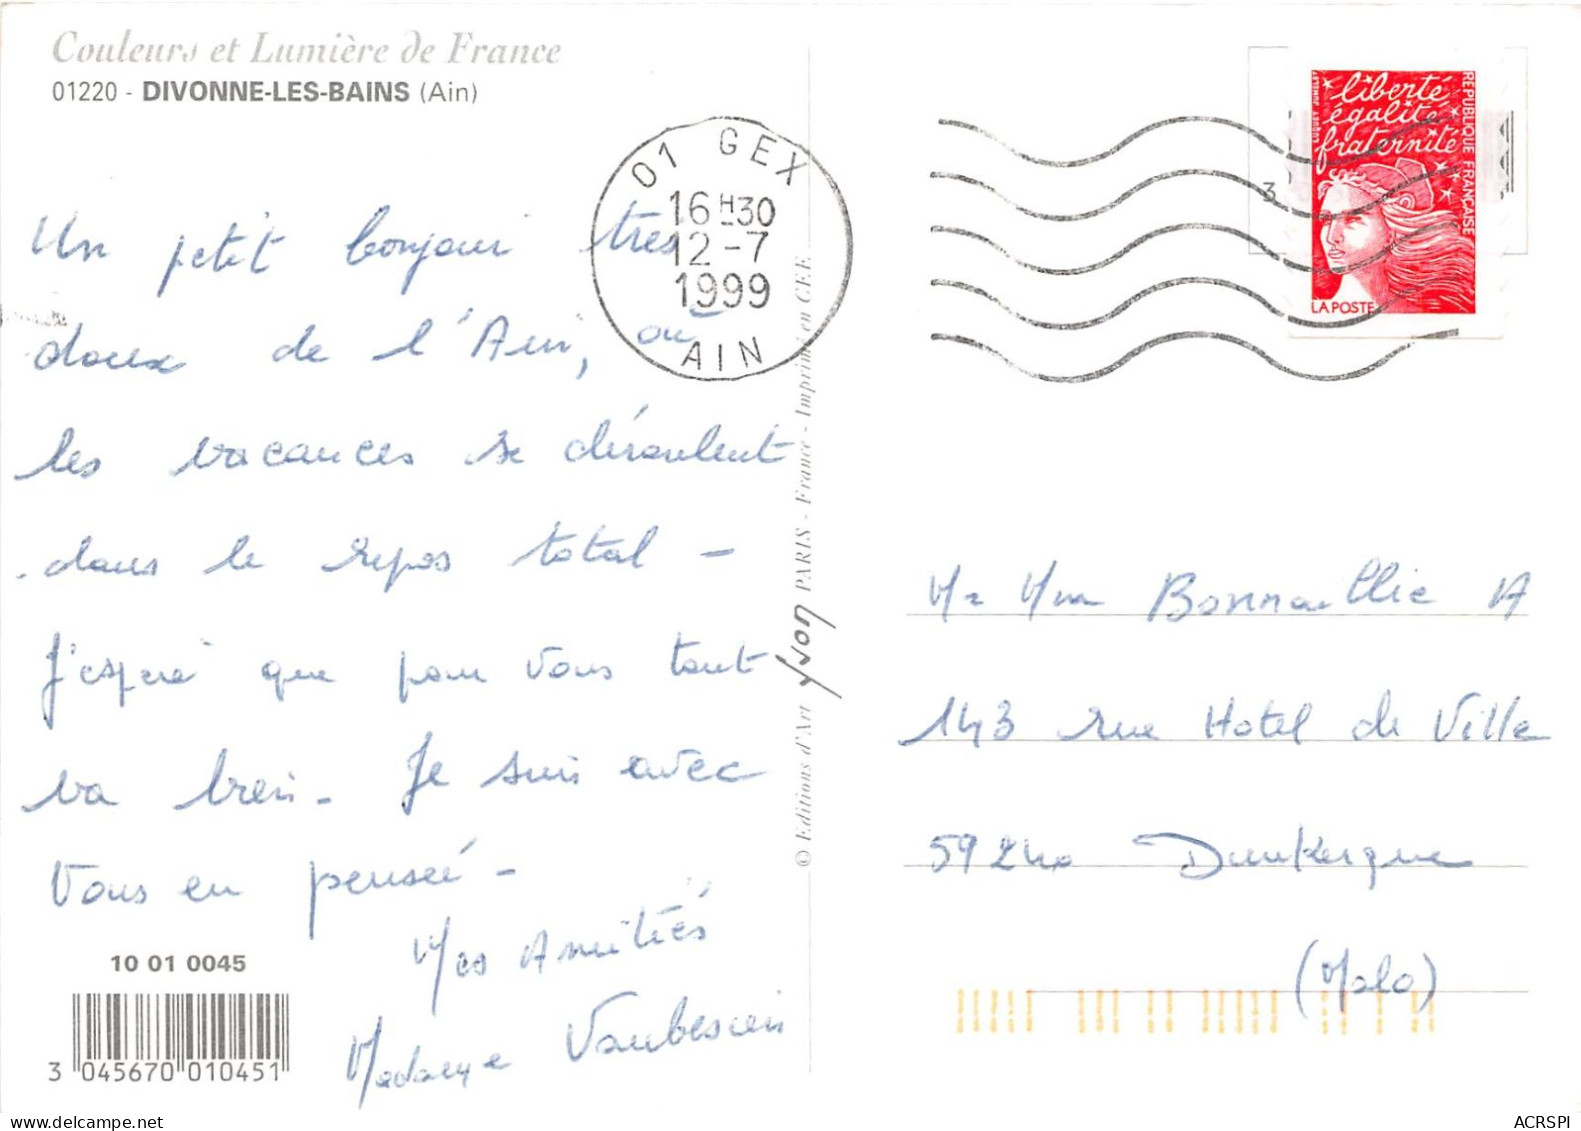 Couleurs et Lumière de France
01220 - DIVONNE-LES-BAINS (Ain)
01 GEX
16H30
12-7
1999
AIN
liberté
égalité
fraternité
RÉPUBLIQUE FRANÇAISE
LUQUET JUMELET
LA POSTE
3
Un petit bonjour très
doux de l'Ain, où
les vacances se déroulent
dans le repos total -
J'espère que pour vous tout
va bien - Je suis avec
Vous en pensée -
Mes Amitiés
Madame
© Editions d'Art YVON PARIS - France - Imprimé en CEE
Bonnaillie A
143 rue Hotel de Ville
59240 Dunkerque
(Malo)
10 01 0045
3 045670 010451
ACRSPI